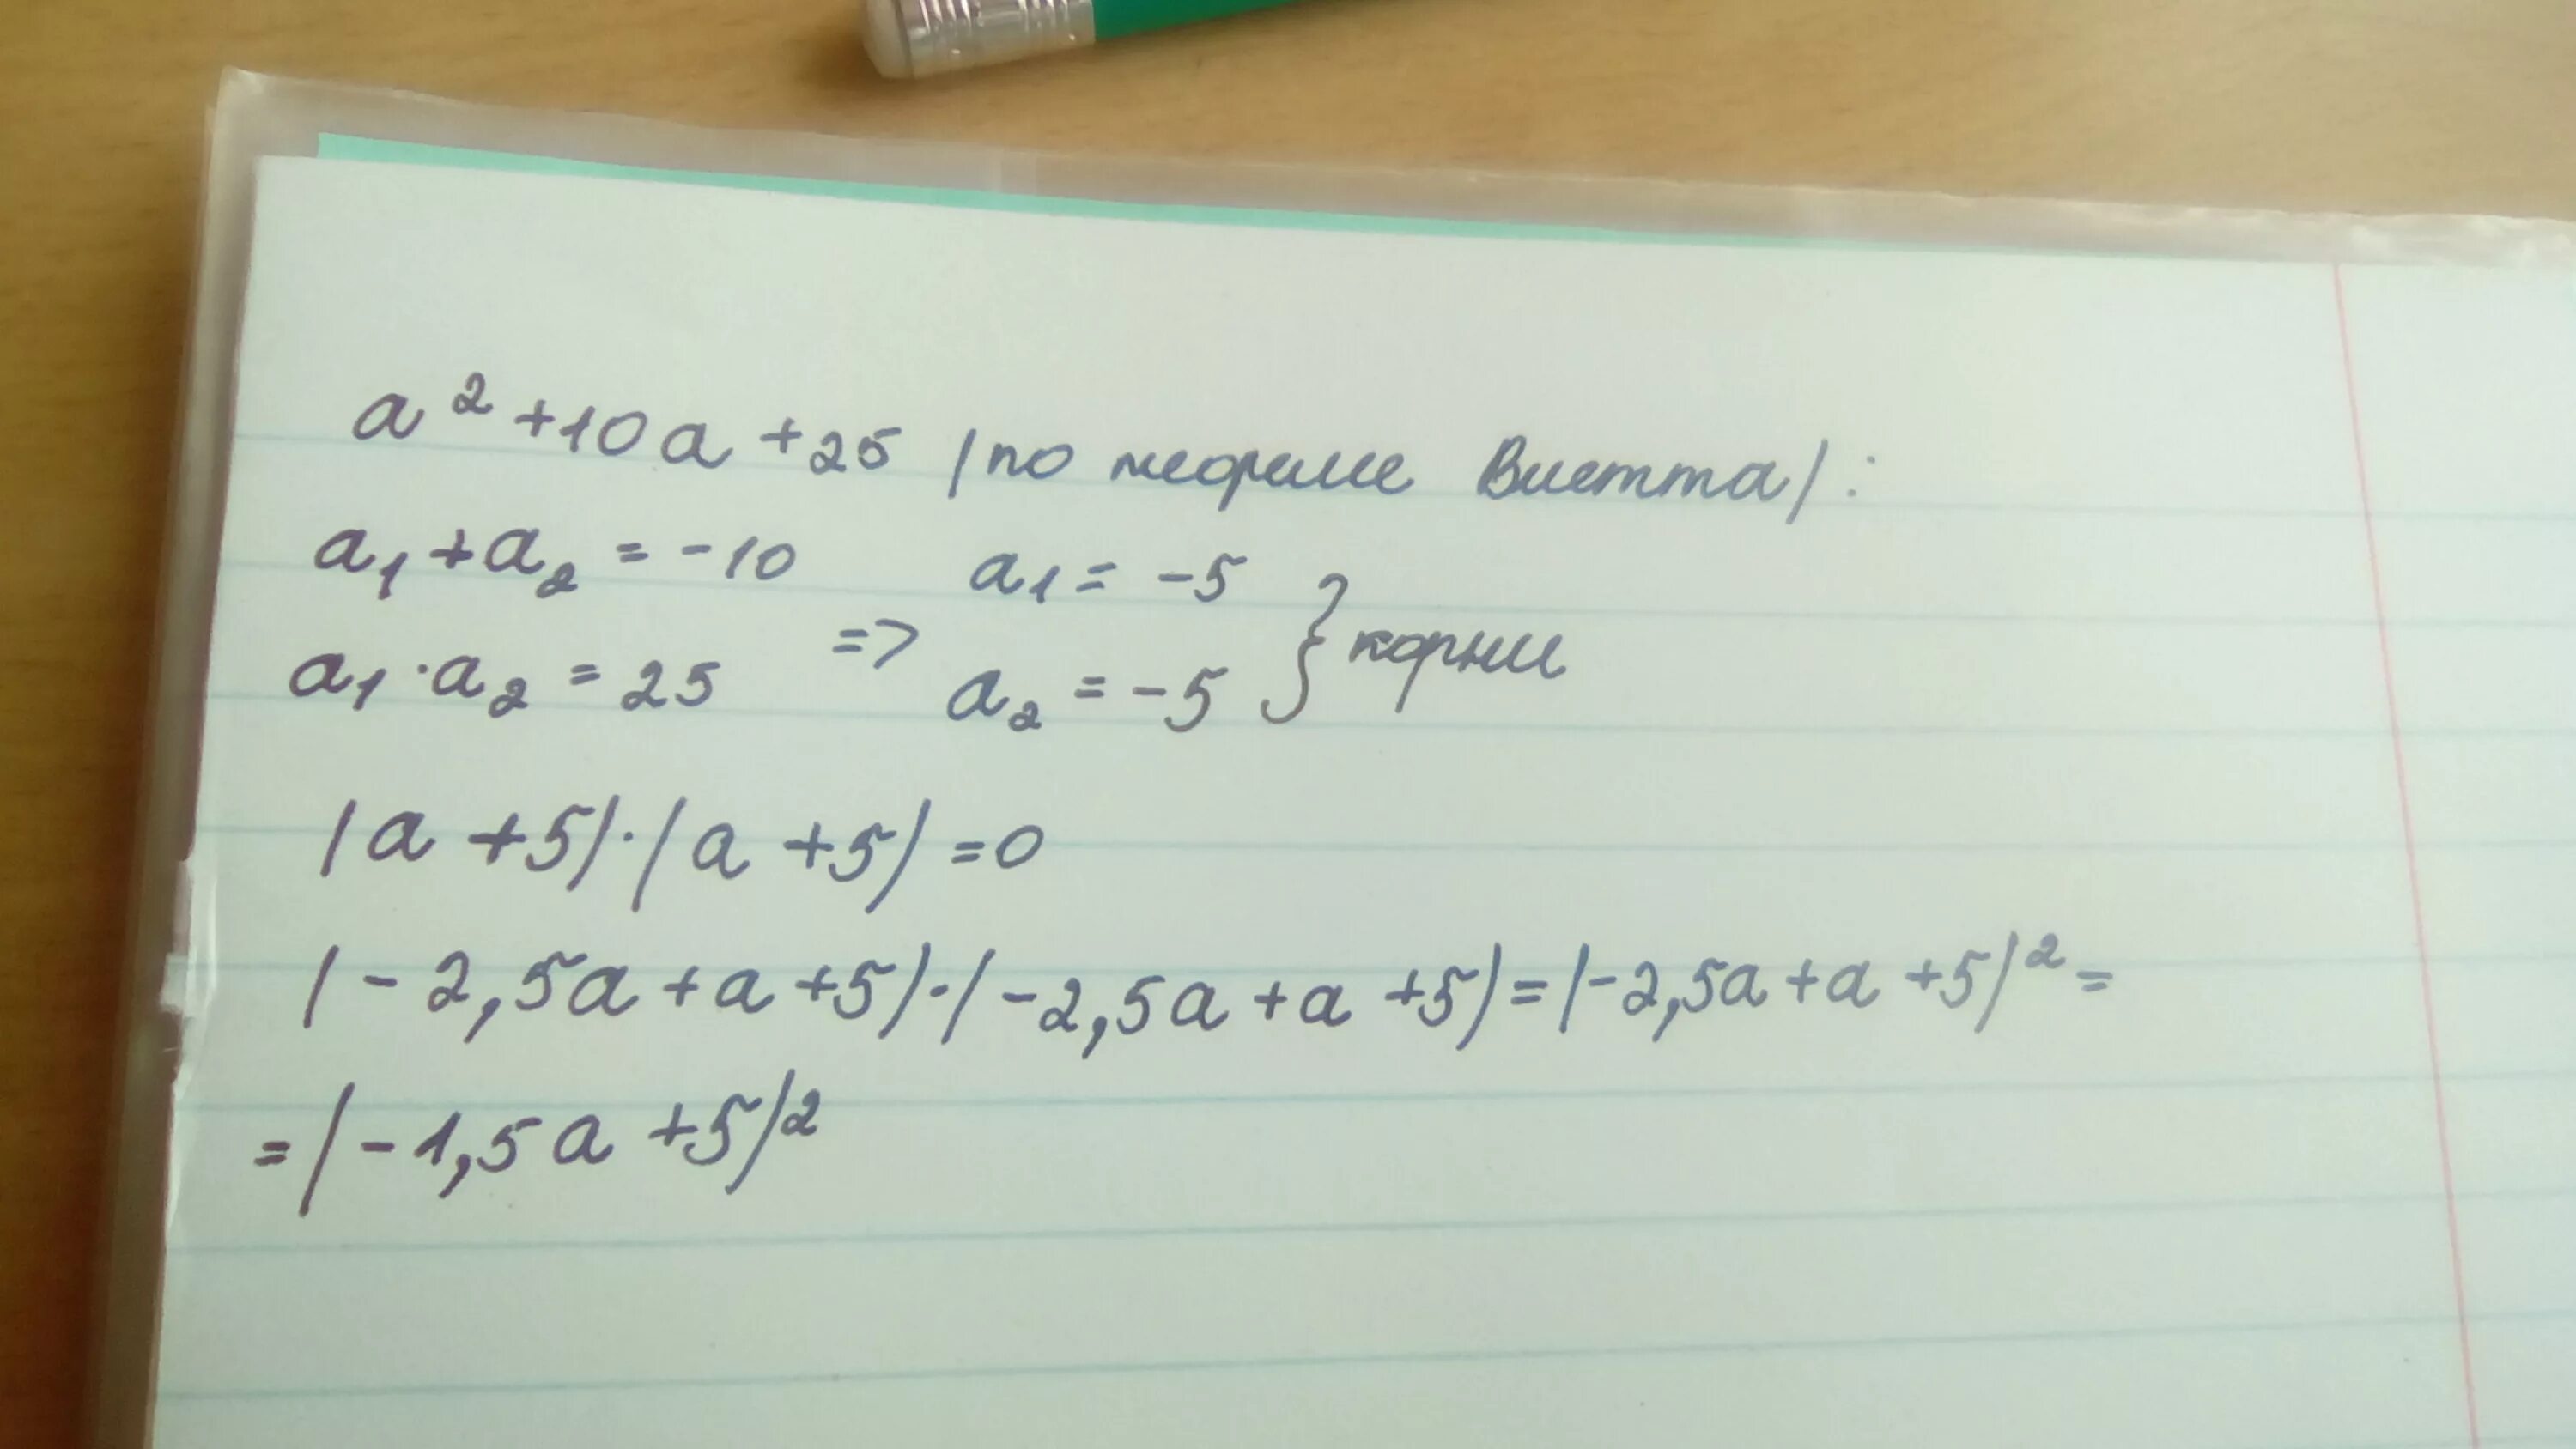 a² + 10a + 25 (по теореме Виетта):
a₁ + a₂ = -10
a₁ · a₂ = 25
=>
a₁ = -5
a₂ = -5
} корни
(a + 5) · (a + 5) = 0
(-2,5a + a + 5) · (-2,5a + a + 5) = (-2,5a + a + 5)² =
= (-1,5a + 5)²